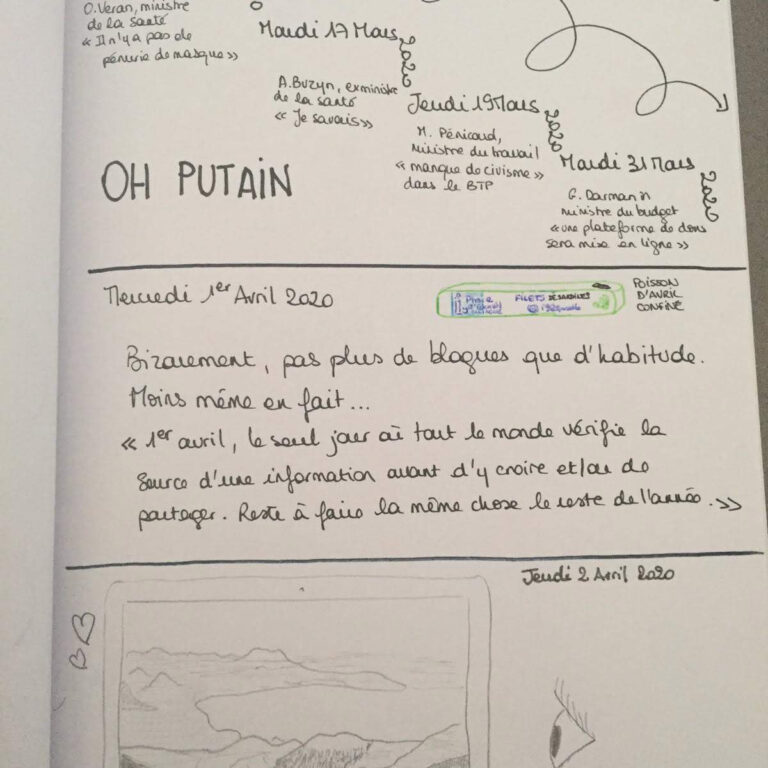 O. Veran, ministre
de la santé
« Il n'y a pas de
pénurie de masque »
Mardi 17 Mars
2020
A. Buzyn, exministre
de la santé
« Je savais »
Jeudi 19 Mars
2020
M. Pénicaud,
ministre du travail
« manque de civisme »
dans le BTP
Mardi 31 Mars
2020
G. Darmanin
ministre du budget
« une plateforme de dons
sera mise en ligne »
OH PUTAIN
Mercredi 1er Avril 2020
FILETS DE SARDINES
POISSON
D'AVRIL
CONFINÉ
Bizarement, pas plus de blagues que d'habitude.
Moins même en fait...
« 1er avril, le seul jour où tout le monde vérifie la
source d'une information avant d'y croire et/ou de
partager. Reste à faire la même chose le reste de l'année. »
Jeudi 2 Avril 2020